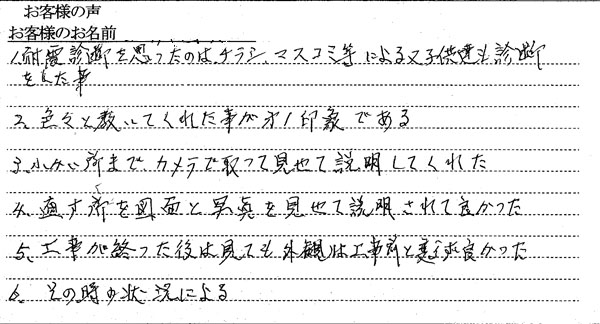 お客様の声
お客様のお名前
1.耐震診断を思ったのはチラシ、マスコミ等による又子供達も診断
を見た事
2. 色々と教えてくれた事が第1印象である
3. 小かい所まで、カメラで取って見せて説明してくれた
4. 直す所を図面と写真を見せて説明されて良かった
5. 工事が終った後は見ても外観は工事前と 良かった
6. その時の状況による